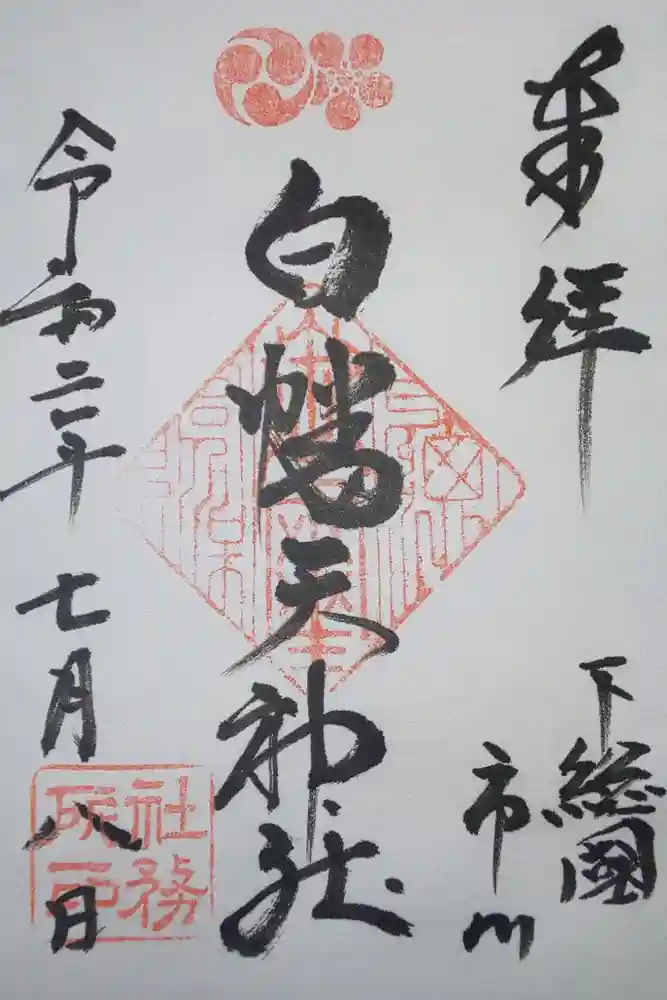 奉拝
下総國
市川
白幡天神社
令和二年七月八日
社務